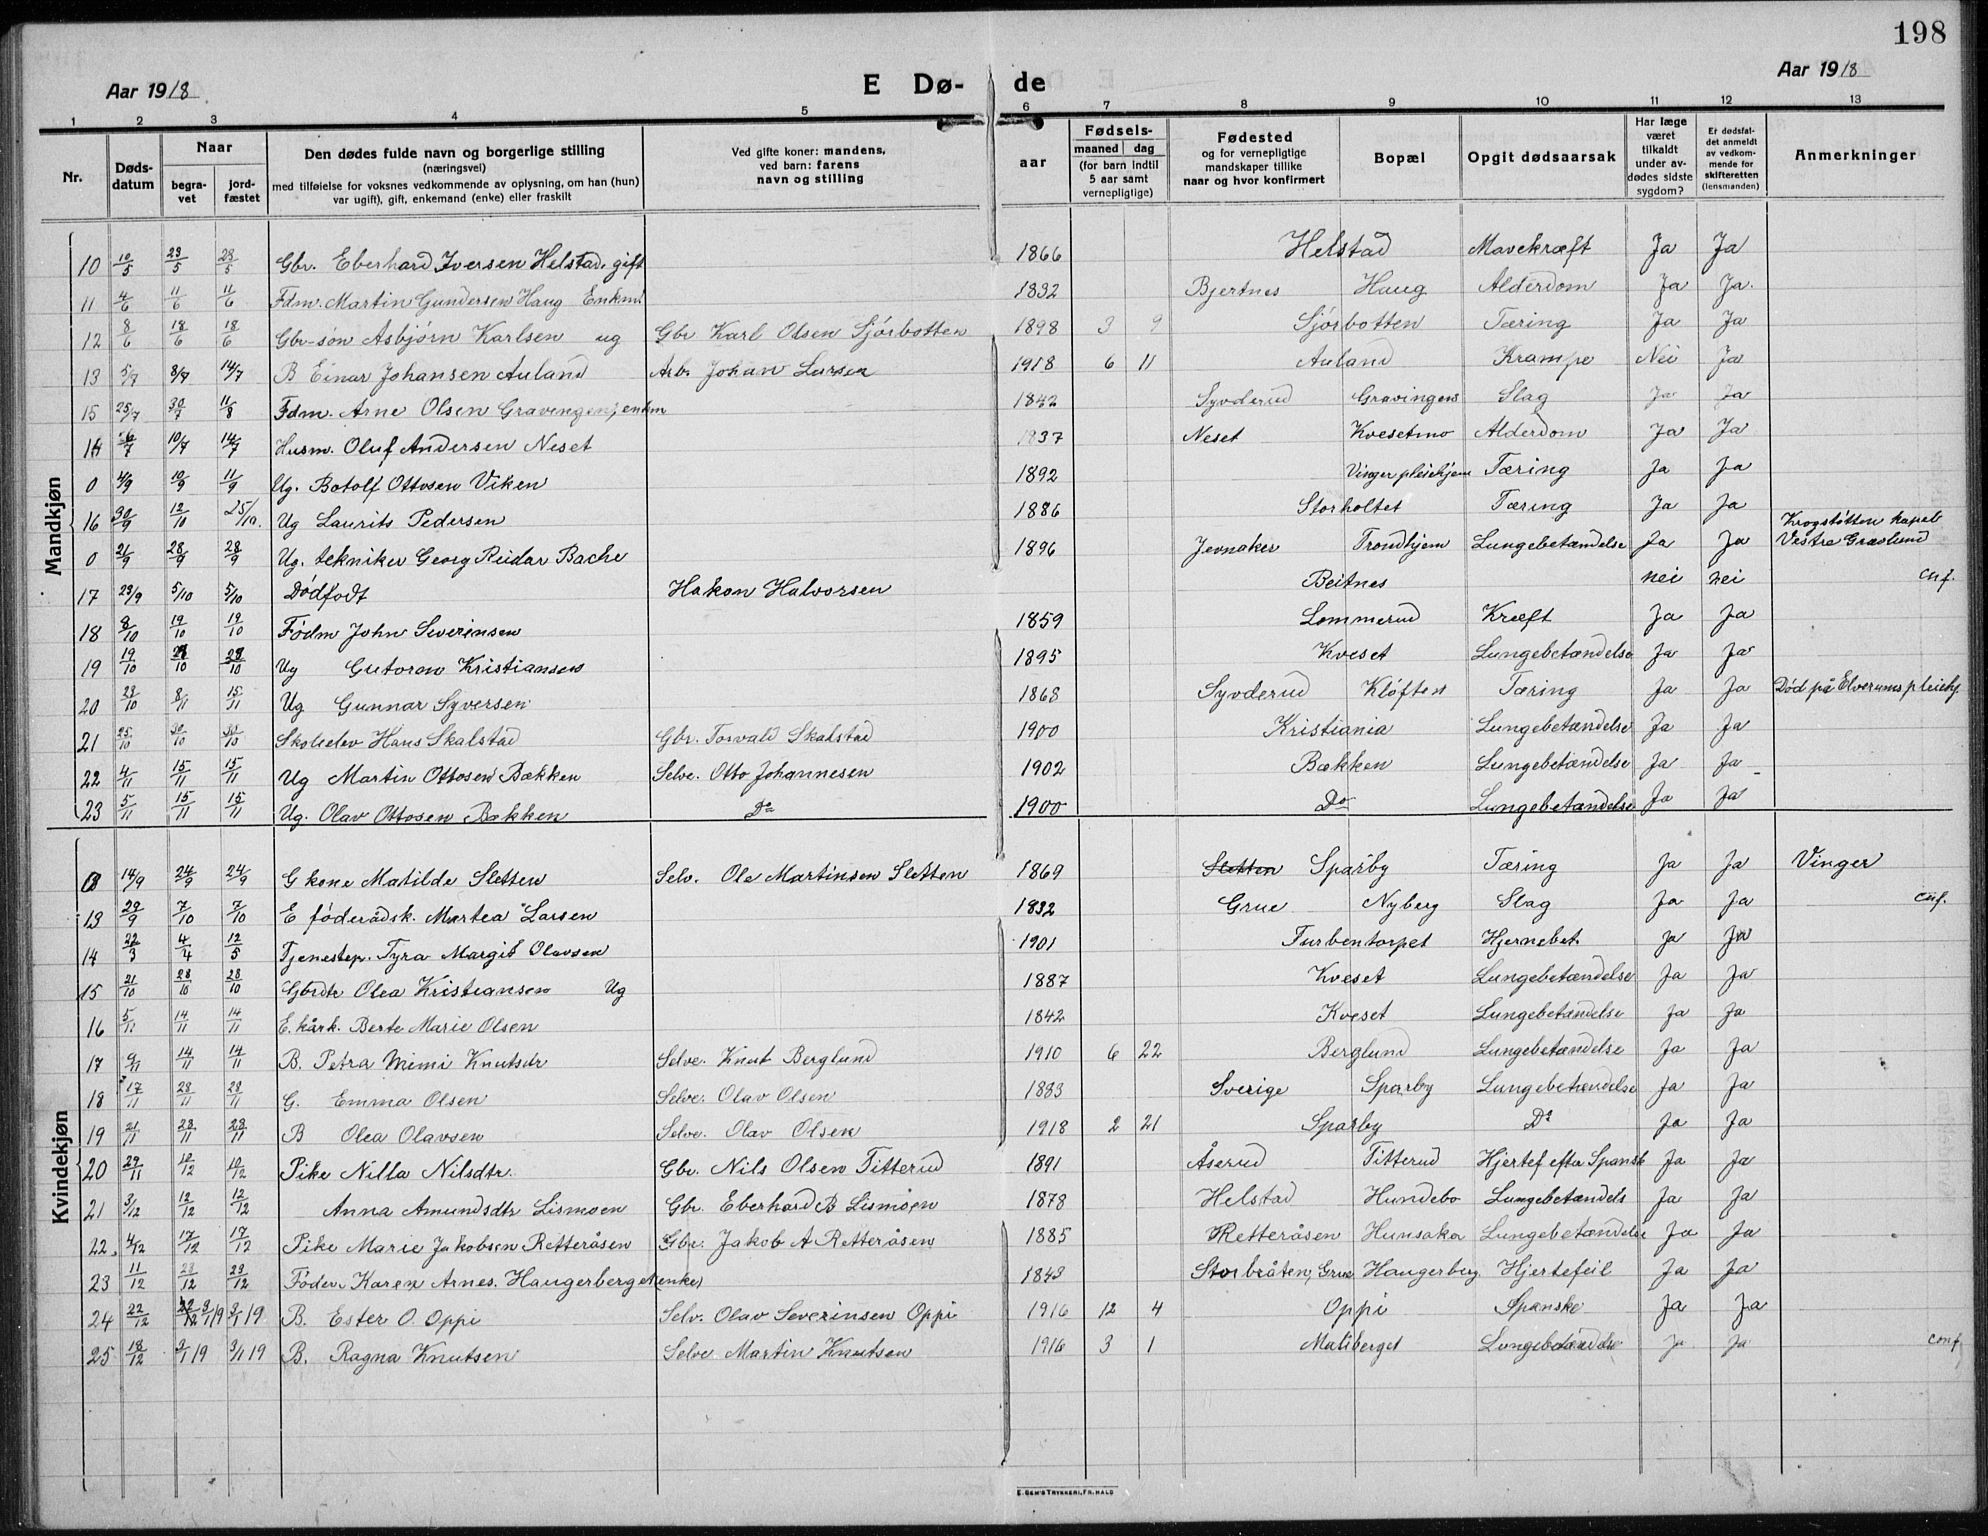 198
Aar 1918 E Dø- de Aar 1918
1 2 3 4 5 6 7 8 9 10 11 12 13
Nr.
Døds-
datum
Naar
begra-
vet
jord-
fæstet
Den dødes fulde navn og borgerlige stilling
(næringsvei)
med tilføielse for voksnes vedkommende av oplysning, om han (hun)
var ugift), gift, enkemand (enke) eller fraskilt
Ved gifte koner: mandens,
ved barn: farens
navn og stilling
aar
Fødsels-
maaned dag
(for barn indtil
5 aar samt
vernepligtige)
Fødested
og for vernepligtige
mandskaper tillike
naar og hvor konfirmert
Bopæl
Opgit dødsaarsak
Har læge
været
tilkaldt
under av-
dødes sidste
sygdom?
Er dødsfal-
det anmeldt
av vedkom-
mende for
skifteretten
(lensmanden)
Anmerkninger
Mandkjøn
10 10/5 23/5 23/5 Gbr. Eberhard Iversen Helstad. gift 1866 Helstad Mavekræft Ja Ja
11 4/6 11/6 11/6 Fdm. Martin Gundersen Haug Enkm. 1832 Bjertnes Haug Alderdom Ja Ja.
12 8/6 18/6 18/6 Gbr-søn Asbjørn Karlsen ug Gbr Karl Olsen Sjørbotten 1898 3 9 Sjørbotten Tæring Ja Ja
13 5/7 8/7 14/7 B Einar Johansen Auland Arb. Johan Larsen 1918 6 11 Auland Krampe Nei Ja
15 25/7 30/7 11/8 Fdm. Arne Olsen Gravengen, enkm 1842 Syvderud Gravingen Slag Ja Ja
14 6/7 10/7 14/7 Husm. Oluf Andersen Neset 1837 Neset Kvesetmo Alderdom Ja Ja
0 4/9 10/9 11/9 Ug. Botolf Ottosen Viken 1892 Vinger pleiehjem Tæring Ja Ja
16 30/9 12/10 25/10. Ug Laurits Pedersen 1886 Storholtet Tæring Ja Ja
0 21/9 28/9 28/9 Ug. tekniker Georg Reidar Bache 1896 Jevnaker Trondhjem Lungebetændelse Ja Ja Krogstøtten kapel
Vestre Græslund
17 23/9 5/10 5/10 Dødfødt Hakon Halvorsen Beitnes nei nei cnf.
18 8/10 19/10 19/10 Fødm John Severinsen 1859 Lommerud Kræft Ja Ja
19 19/10 28/10 28/10 Ug Gutorm Kristiansen 1895 Kveset Lungebetændelse Ja Ja
20 23/10 8/11 15/11 Ug Gunnar Syversen 1868 Syvderud Kløften Tæring Ja Ja Død på Elverums pleiehj
21 25/10 30/10 30/10 Skoleelev Hans Skalstad Gbr. Torvald Skalstad 1900 Kristiania Lungebetændelse Ja Ja
22 4/11 15/11 15/11 Ug Martin Ottosen Bækken Selve. Otto Johannesen 1902 Bækken Lungebetændelse Ja Ja
23 5/11 15/11 15/11 Ug. Olav Ottosen Bækken Do 1900 Do Lungebetændelse Ja Ja
Kvindekjøn
0 14/9 24/9 24/9 G kone Matilde Sletten Selv. Ole Martinsen Sletten 1869 Sletten Sparby Tæring Ja Ja Vinger
13 29/9 7/10 7/10 E føderådsk. Martea Larsen 1832 Grue Nyberg Slag Ja Ja cnf.
14 22/3 4/4 12/5 Tjenestep. Tyra Margit Olavsen 1901 Furbentorpet Hjernebet. Ja Ja
15 21/10 28/10 28/10 Gbrdtr Olea Kristiansen Ug 1887 Kveset Lungebetændelse Ja Ja
16 5/11 14/11 14/11 E. kårk. Berte Marie Olsen 1842 Kveset Lungebetændelse Ja Ja
17 9/11 14/11 14/11 B. Petra Mimi Knutsdr Selve. Knut Berglund 1910 6 22 Berglund Lungebetændelse Ja Ja
18 17/11 28/11 28/11 G. Emma Olsen Selve. Olav Olsen 1883 Sverige Sparby Lungebetændelse Ja Ja
19 21/11 28/11 28/11 B Olea Olavsen Selve. Olav Olsen 1918 2 21 Sparby Do Ja Ja
20 29/11 10/12 10/12 Pike Nilla Nilsdtr. Gbr. Nils Olsen Titterud 1891 Åserud Titterud Hjertef efter Spansk Ja Ja
21 3/12 12/12 12/12 Anna Amundsdtr Lismoen Gbr. Eberhard B Lismoen 1878 Helstad Hundebo Lungebetændels Ja Ja
22. 4/12 17/12 17/12 Pike Marie Jakobsen Retteråsen Gbr. Jakob A Retteråsen 1885 Retteråsen Hunsaka Lungebetændelse Ja Ja
23 11/12 23/12 23/12 Føder. Karen Arnes. Haugerberget (enke) 1843 Storbråten, Grue Haugerberg Hjertefeil Ja Ja
24 22/12 3/1 19 3/1 19 B. Ester O. Oppi Selv. Olav Severinsen Oppi 1916 12 4 Oppi Spanske Ja Ja
25 18/12 3/1 19 3/1 19 B. Ragna Knutsen Selve Martin Knutsen 1916 3 1 Maliberget Lungebetændelse Ja Ja conf.
E. SEM'S TRYKKERI, FR.HALD